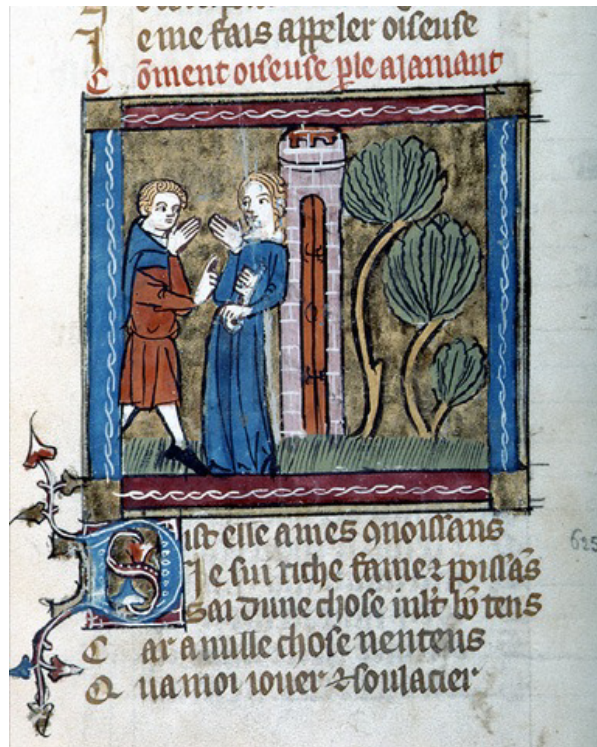 J e me fais appeler oiseuse
C õment oiseuse ple a lamant
S ist elle a mes ꝯnoissans
J e sui riche fame ⁊ poissãs
S ai dune chose mlt bõ tens
C ar a nulle chose nentens
Q ua moi iouer ⁊ soulacier
625